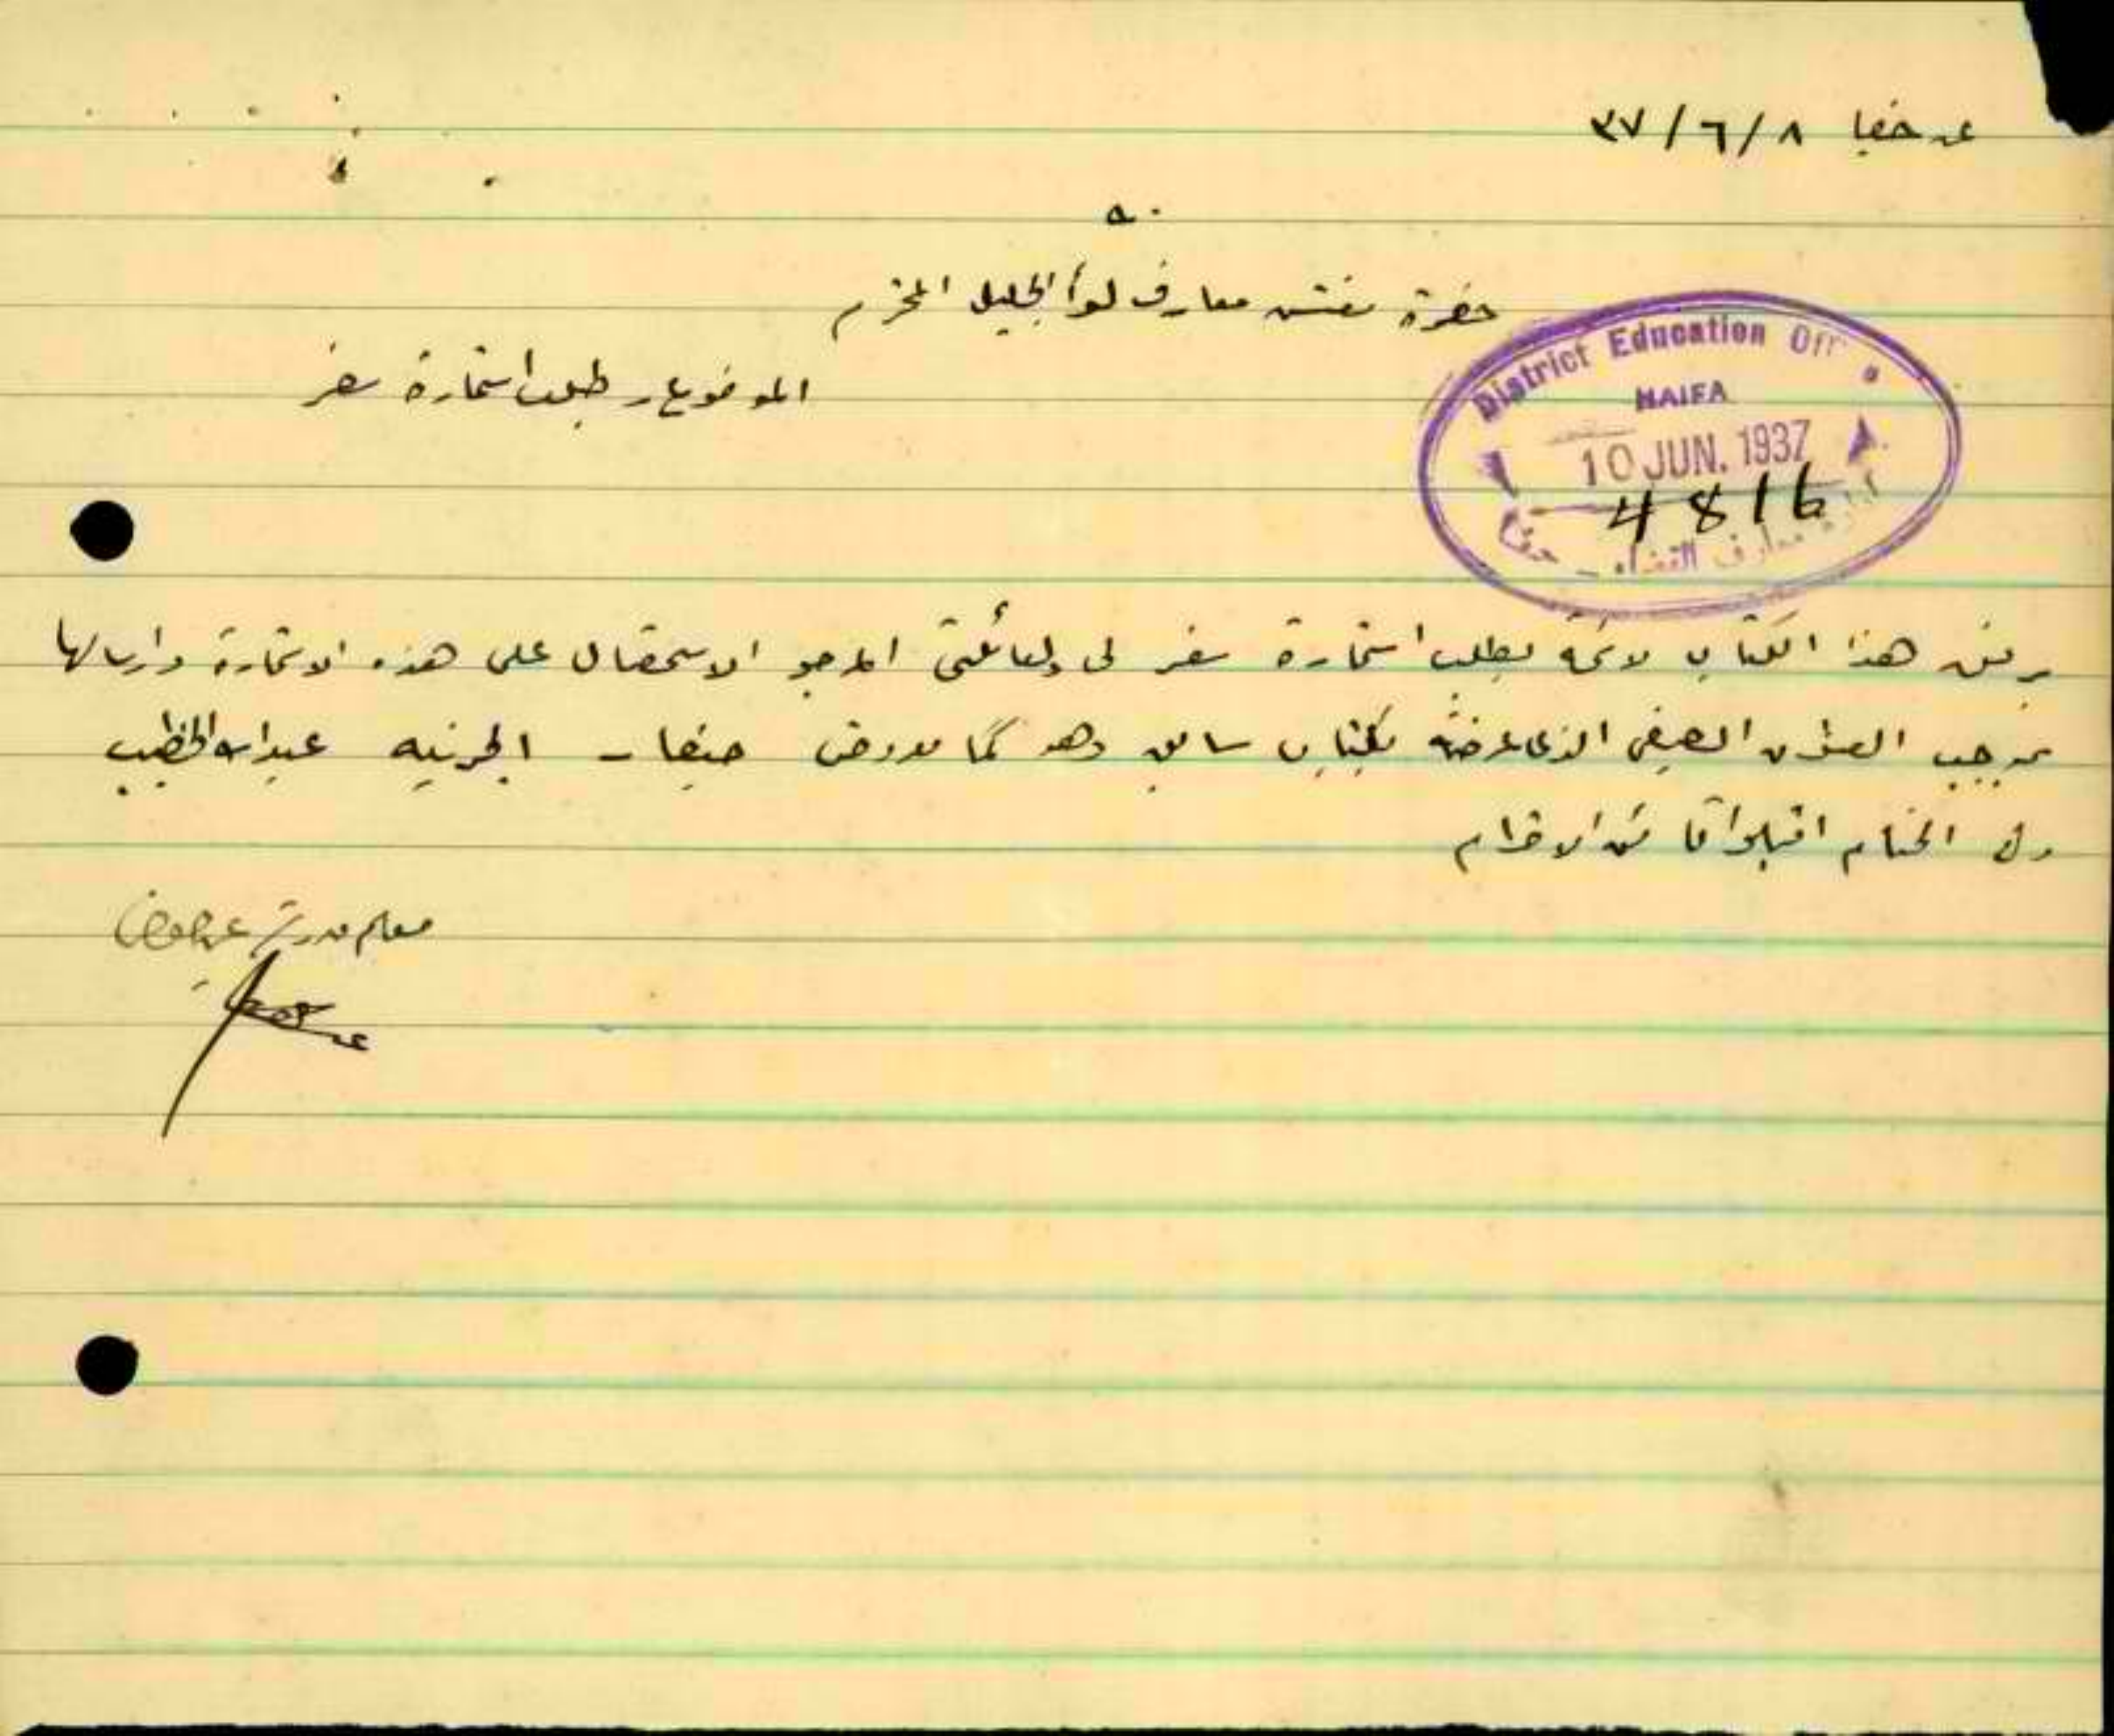 حيفا ٣٧/٦/٨
حضرة مفتش معارف لوأ الجليل المحترم
الموضوع - طلب استمارة سفر
District Education
HAIFA
10 JUN. 1937
4816
معارف القضاء - حيفا
برفق هذا الكتاب لائحة بطلب استمارة سفر لي ولعائلتي المرجو الاستحصال على هذه الاستمارة وارسالها
بموجب العنوان الصيفي الذي عرضته بكتاب سابق وهو كما معروض حيفا - الجرينه عبدالله الخطيب
وفي الختام اقبلوا فائق الاحترام
معلم مدرسة